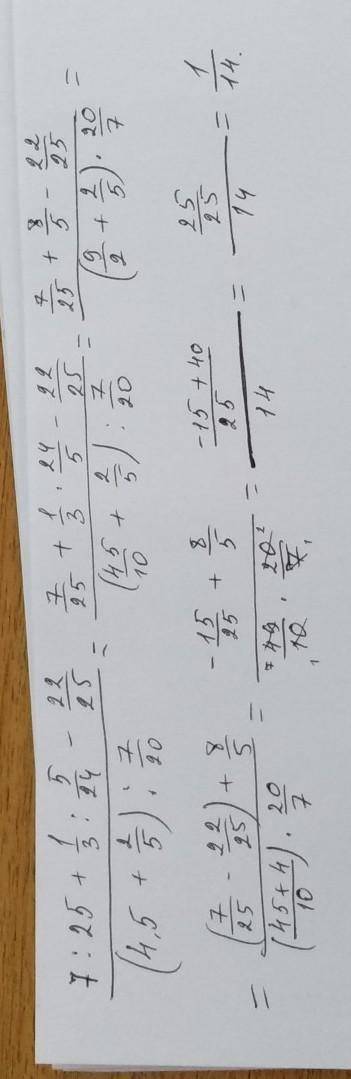 (7 : 25 + 1/3 : 5/24 - 22/25) / ((4,5 + 2/5) : 7/20) = (7/25 + 1/3 · 24/5 - 22/25) / ((45/10 + 2/5) : 7/20) = (7/25 + 8/5 - 22/25) / ((9/2 + 2/5) · 20/7) =
= ((7/25 - 22/25) + 8/5) / (((45+4)/10) · 20/7) = (-15/25 + 8/5) / (49/10 · 20/7) = ((-15+40)/25) / 14 = (25/25) / 14 = 1/14.